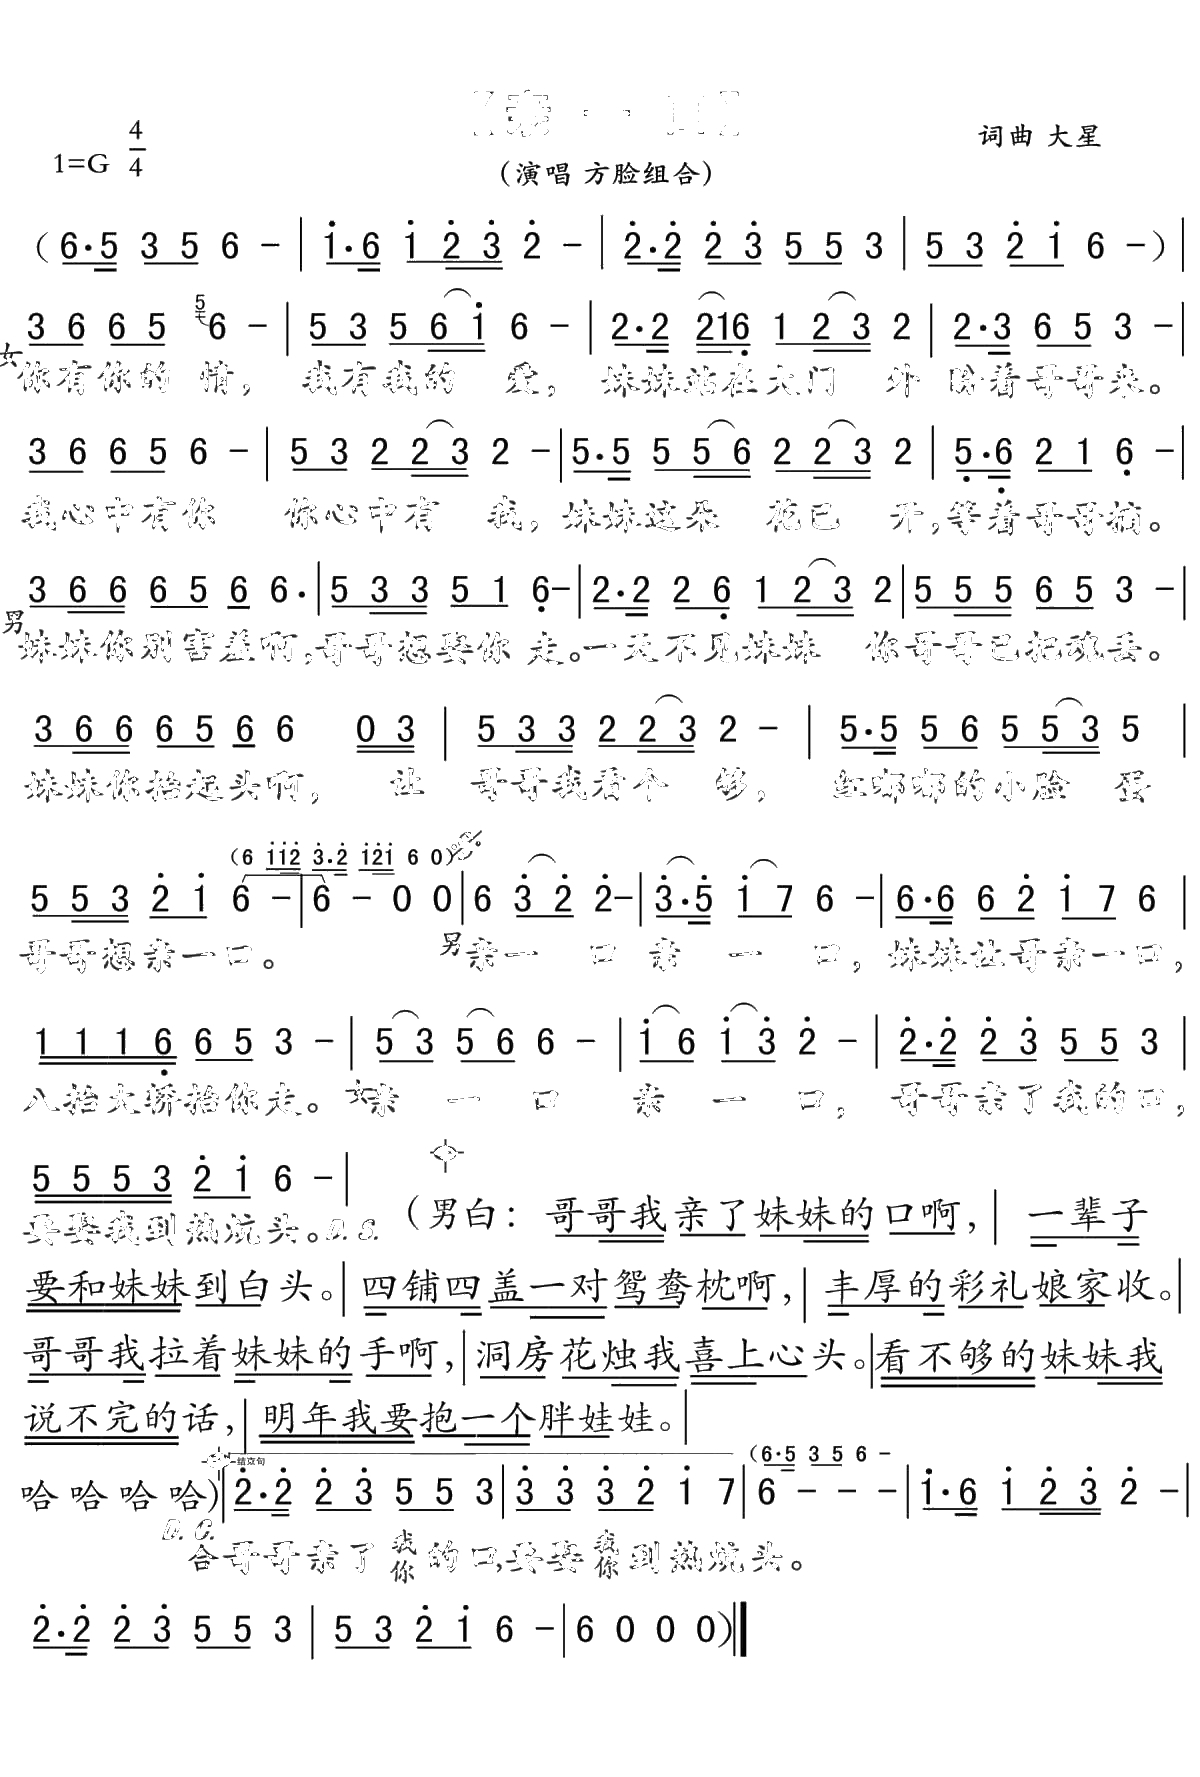 【亲一口】
1=G 4/4
词曲 大星
（演唱 方脸组合）
（6·5 3 5 6 - | i·6 i 2 3 2 - | 2·2 2 3 5 5 3 | 5 3 2 i 6 - ）|
3 6 6 5 5 6 - | 5 3 5 6 i 6 - | 2·2 216 1 2 3 2 | 2·3 6 5 3 - |
女 你有你的 情， 我有我的 爱， 妹妹站在大门 外 盼着哥哥来。
3 6 6 5 6 - | 5 3 2 2 3 2 - | 5·5 5 5 6 2 2 3 2 | 5·6 2 1 6 - |
我心中有你 你心中有 我， 妹妹这朵 花已 开，等着哥哥摘。
3 6 6 6 5 6 6· | 5 3 3 5 1 6 - | 2·2 2 6 1 2 3 2 | 5 5 5 6 5 3 - |
男 妹妹你别害羞啊，哥哥想娶你 走。一天不见妹妹 你哥哥已把魂丢。
3 6 6 6 5 6 6 0 3 | 5 3 3 2 2 3 2 - | 5·5 5 6 5 5 3 5 |
妹妹你抬起头啊， 让 哥哥我看个 够， 红嘟嘟的小脸 蛋
（6 i i 2 3·2 i 2 i 6 0）
5 5 3 2 i 6 - | 6 - 0 0 | 6 3 2 2 - | 3·5 i 7 6 - | 6·6 6 2 i 7 6 |
哥哥想亲一口。 男 亲一 口 亲 一 口，妹妹让哥亲一口，
1 1 1 6 6 5 3 - | 5 3 5 6 6 - | i 6 i 3 2 - | 2·2 2 3 5 5 3 |
八抬大轿抬你走。 女 亲 一 口 亲 一 口， 哥哥亲了我的口，
5 5 5 3 2 i 6 - |
要娶我到热炕头。D. S. （男白：哥哥我亲了妹妹的口啊，| 一辈子
要和妹妹到白头。| 四铺四盖一对鸳鸯枕啊，| 丰厚的彩礼娘家收。|
哥哥我拉着妹妹的手啊，| 洞房花烛我喜上心头。| 看不够的妹妹我
说不完的话，| 明年我要抱一个胖娃娃。|
结束句 （6·5 3 5 6 -
哈哈哈哈）| 2·2 2 3 5 5 3 | 3 3 3 2 i 7 | 6 - - - | i·6 i 2 3 2 - |
D. C.
合 哥哥亲了 我 你 的口，要娶 我 你 到热炕头。
2·2 2 3 5 5 3 | 5 3 2 i 6 - | 6 0 0 0）‖